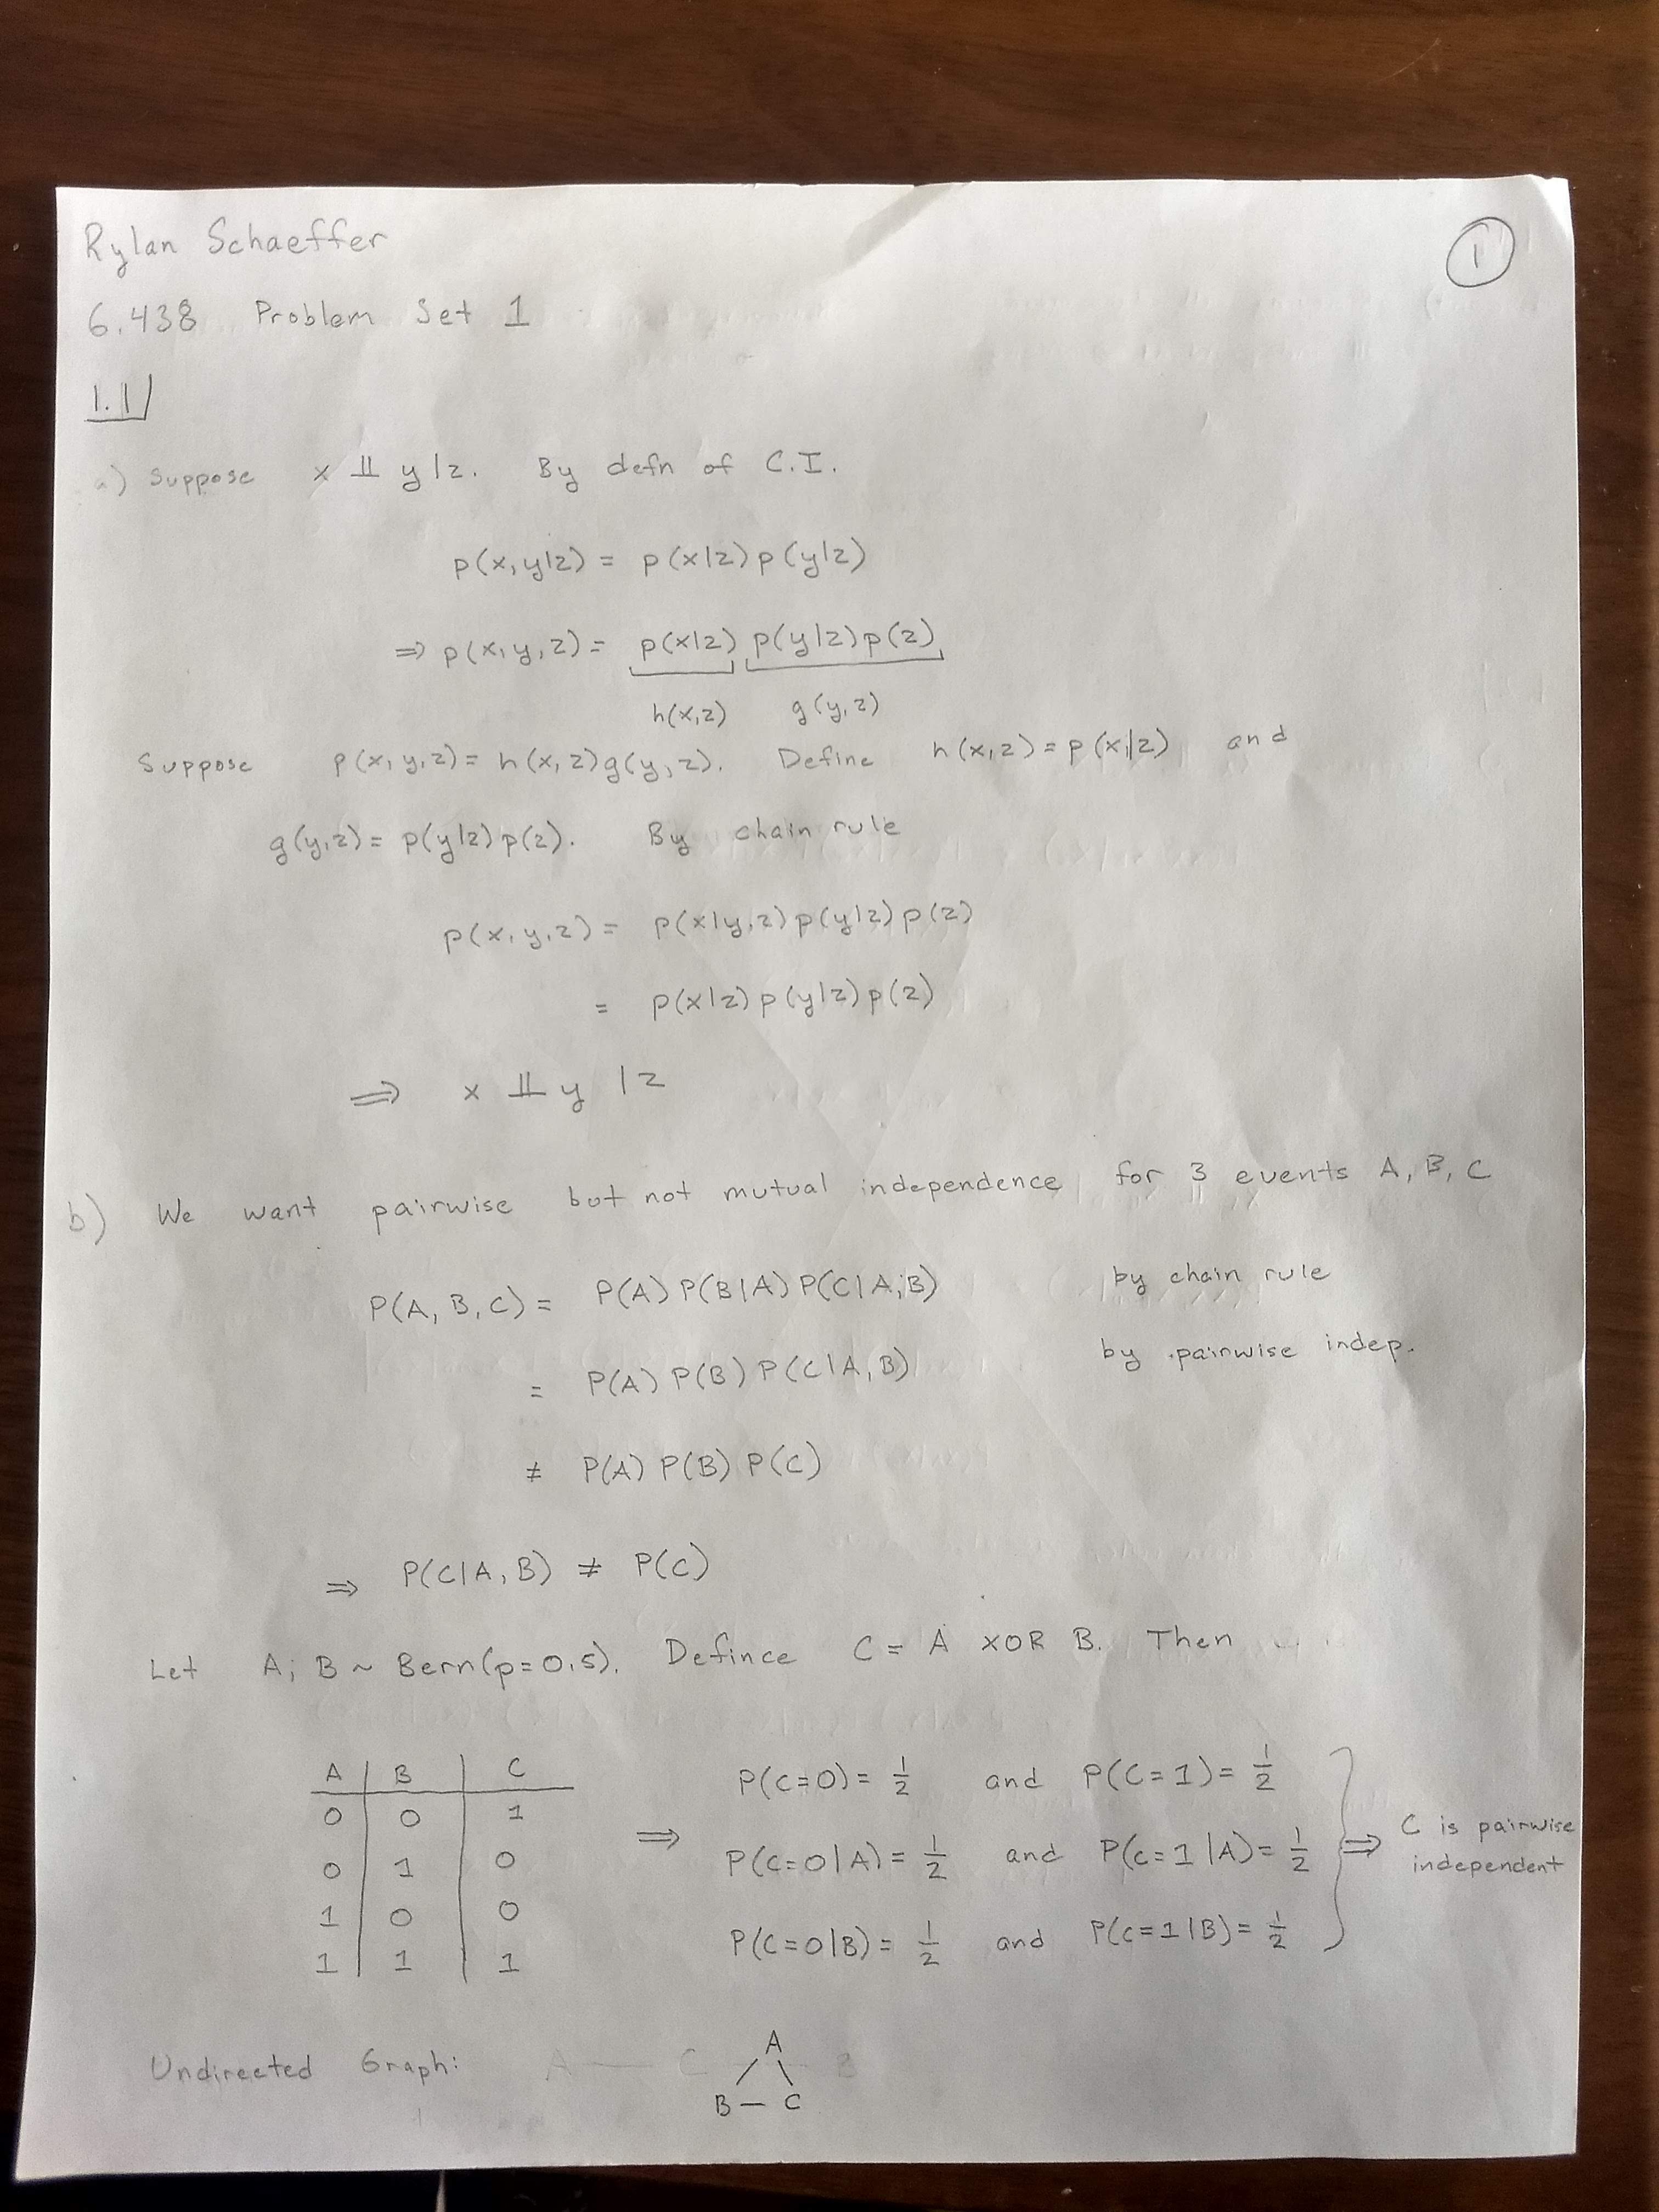 Rylan Schaeffer
1
6.438 Problem Set 1
1.1
a) Suppose x ⫫ y|z. By defn of C.I.
p(x,y|z) = p(x|z)p(y|z)
⇒ p(x,y,z) = p(x|z) p(y|z)p(z)
h(x,z) g(y,z)
Suppose p(x,y,z) = h(x,z)g(y,z). Define h(x,z) = p(x|z) and
g(y,z) = p(y|z)p(z). By chain rule
p(x,y,z) = p(x|y,z)p(y|z)p(z)
= p(x|z)p(y|z)p(z)
⇒ x ⫫ y |z
b) We want pairwise but not mutual independence for 3 events A, B, C
P(A, B, C) = P(A) P(B|A) P(C|A,B) by chain rule
= P(A) P(B) P(C|A, B) by pairwise indep.
≠ P(A) P(B) P(C)
⇒ P(C|A, B) ≠ P(C)
Let A, B ~ Bern(p=0.5). Defince C = A XOR B. Then
A B C
0 0 1
0 1 0
1 0 0
1 1 1
⇒
P(C=0) = 1/2 and P(C=1) = 1/2
P(C=0|A) = 1/2 and P(C=1|A) = 1/2
P(C=0|B) = 1/2 and P(C=1|B) = 1/2
⇒ C is pairwise
independent
Undirected Graph:
A
B — C